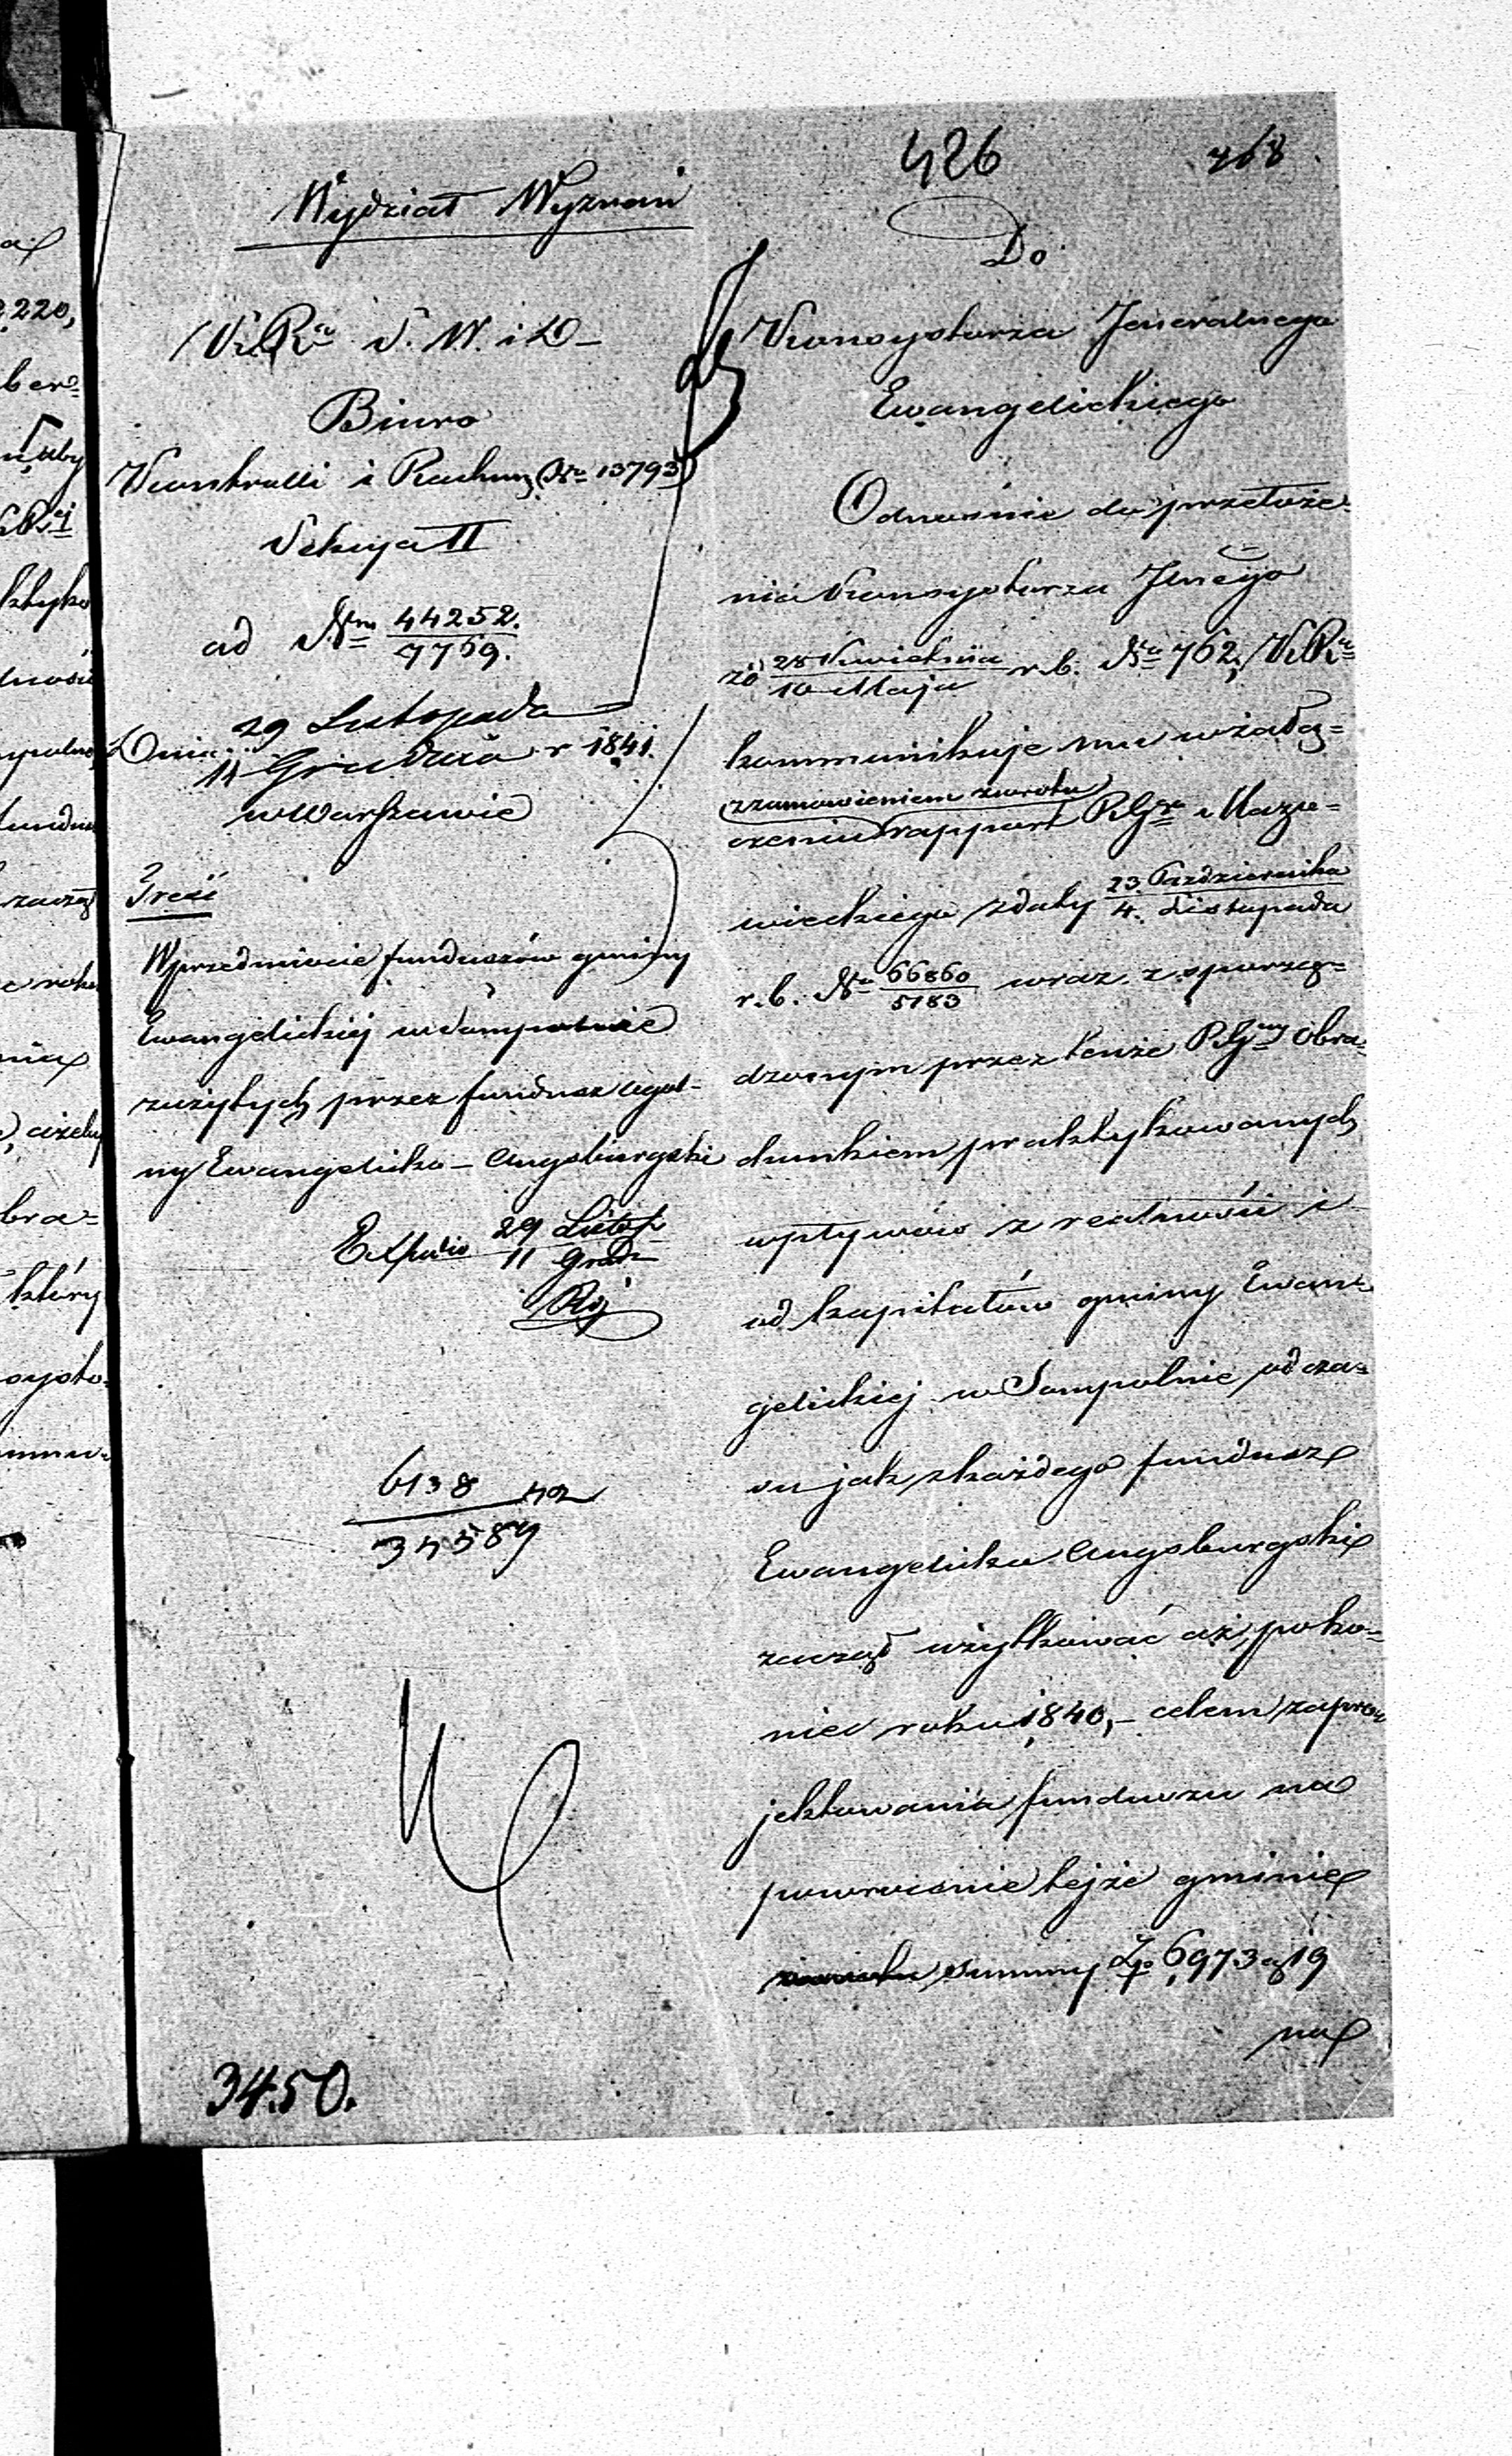 426
768
Wydział Wyznań
K.R.ᵃ S. W. i D.
Biuro
Kontrolli i Rachun (Nᵒ 13793)
Sekcya II
ad Nᵐ 44252.
7769.
29 Listopada
Dnia 11 Grudnia r 1841.
w Warszawie
Treść
W przedmiocie funduszów gminy
Ewangelickiej w Sompolnie
zużytych przez fundusz ogól-
ny Ewangelicko-Augsburgski
29 Listop
11 Grud
6138
34589
3450.
Do
Konsystorza Jeneralnego
Ewangelickiego
Odnośnie do przełoże-
nia Konsystorza Jnego
zd 28 Kwietnia
10 Maja r.b. Nᵒ 762, K.R.ᵃ
kommunikuje mu w załą-
z zamówieniem zwrotu
czeniu rapport R.G.ᵘ Mazo-
wieckiego z daty 23. Października
4. Listopada
r.b. Nᵒ 66860
5183 wraz z sporzą-
dzonym przez tenże R.G. obra-
chunkiem praktykowanych
wpływów z realności i
od kapitałów gminy Ewan-
gelickiej w Sompolnie, od cza-
su jak z każdego fundusz
Ewangelicko Augsburgski
zaczął użytkować aż po ko-
niec roku 1840,- celem zapro-
jektowania funduszu na
powrócenie tejże gminie
summy Zp 6,973 g 19
na